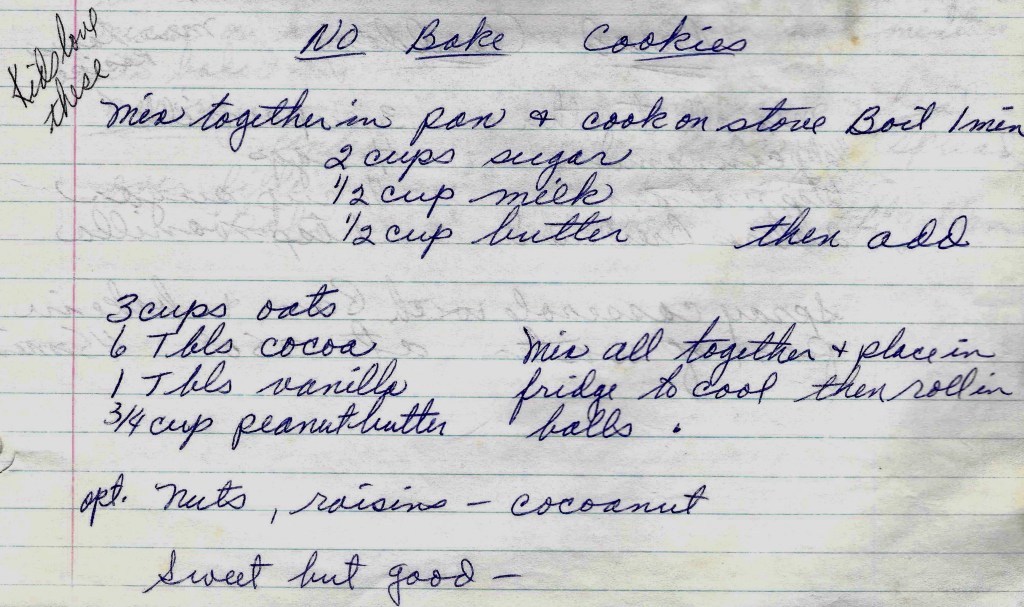 Kids love
these
No Bake Cookies
Mix together in pan & cook on stove Boil 1 min
2 cups sugar
1/2 cup milk
1/2 cup butter then add
3 cups oats
6 Tbls cocoa Mix all together + place in
1 Tbls vanilla fridge to cool then roll in
3/4 cup peanut butter balls.
opt. Nuts, raisins - cocoanut
Sweet but good -